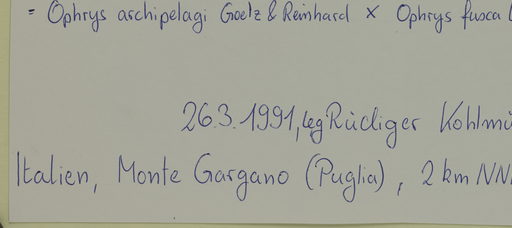 = Ophrys archipelagi Goelz & Reinhard × Ophrys fusca L
26.3.1991, leg Rüdiger Kohlmü
Italien, Monte Gargano (Puglia), 2 km NN